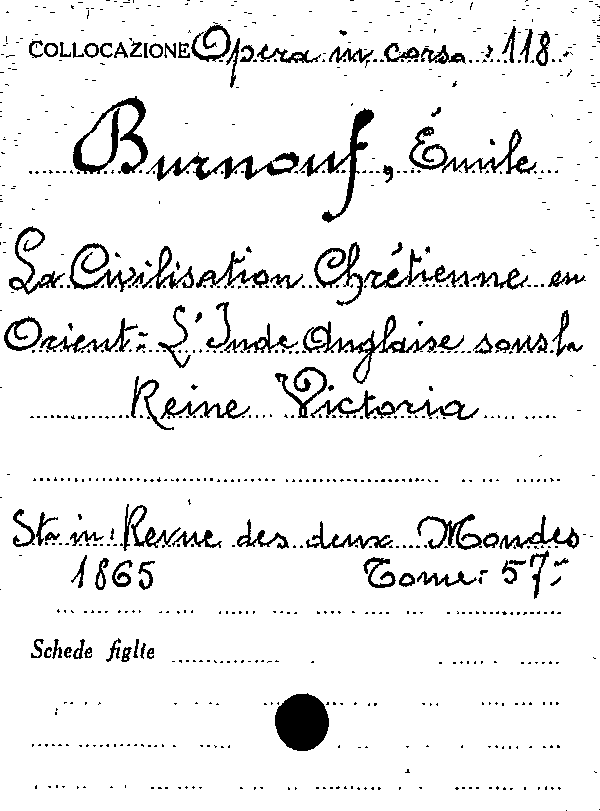 COLLOCAZIONE Opera in corso 118.
Burnouf, Émile
La Civilisation Chrétienne en
Orient = L'Inde Anglaise sous la
Reine Victoria
Sta in: Revue des deux Mondes
1865 Tome: 57:
Schede figlie